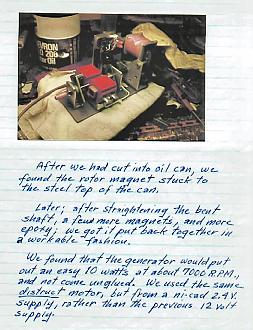 CHEVRON
After we had cut into oil can, we
found the rotor magnet stuck to
the steel top of the can.
Later; after straightening the bent
shaft, a few more magnets, and more
epoxy; we got it put back together in
a workable fashion.
We found that the generator would put
out an easy 10 watts at about 9000 R.P.M.,
and not come unglued. We used the same
distruct motor, but from a ni-cad 2.4 V.
supply, rather than the previous 12 volt
supply.